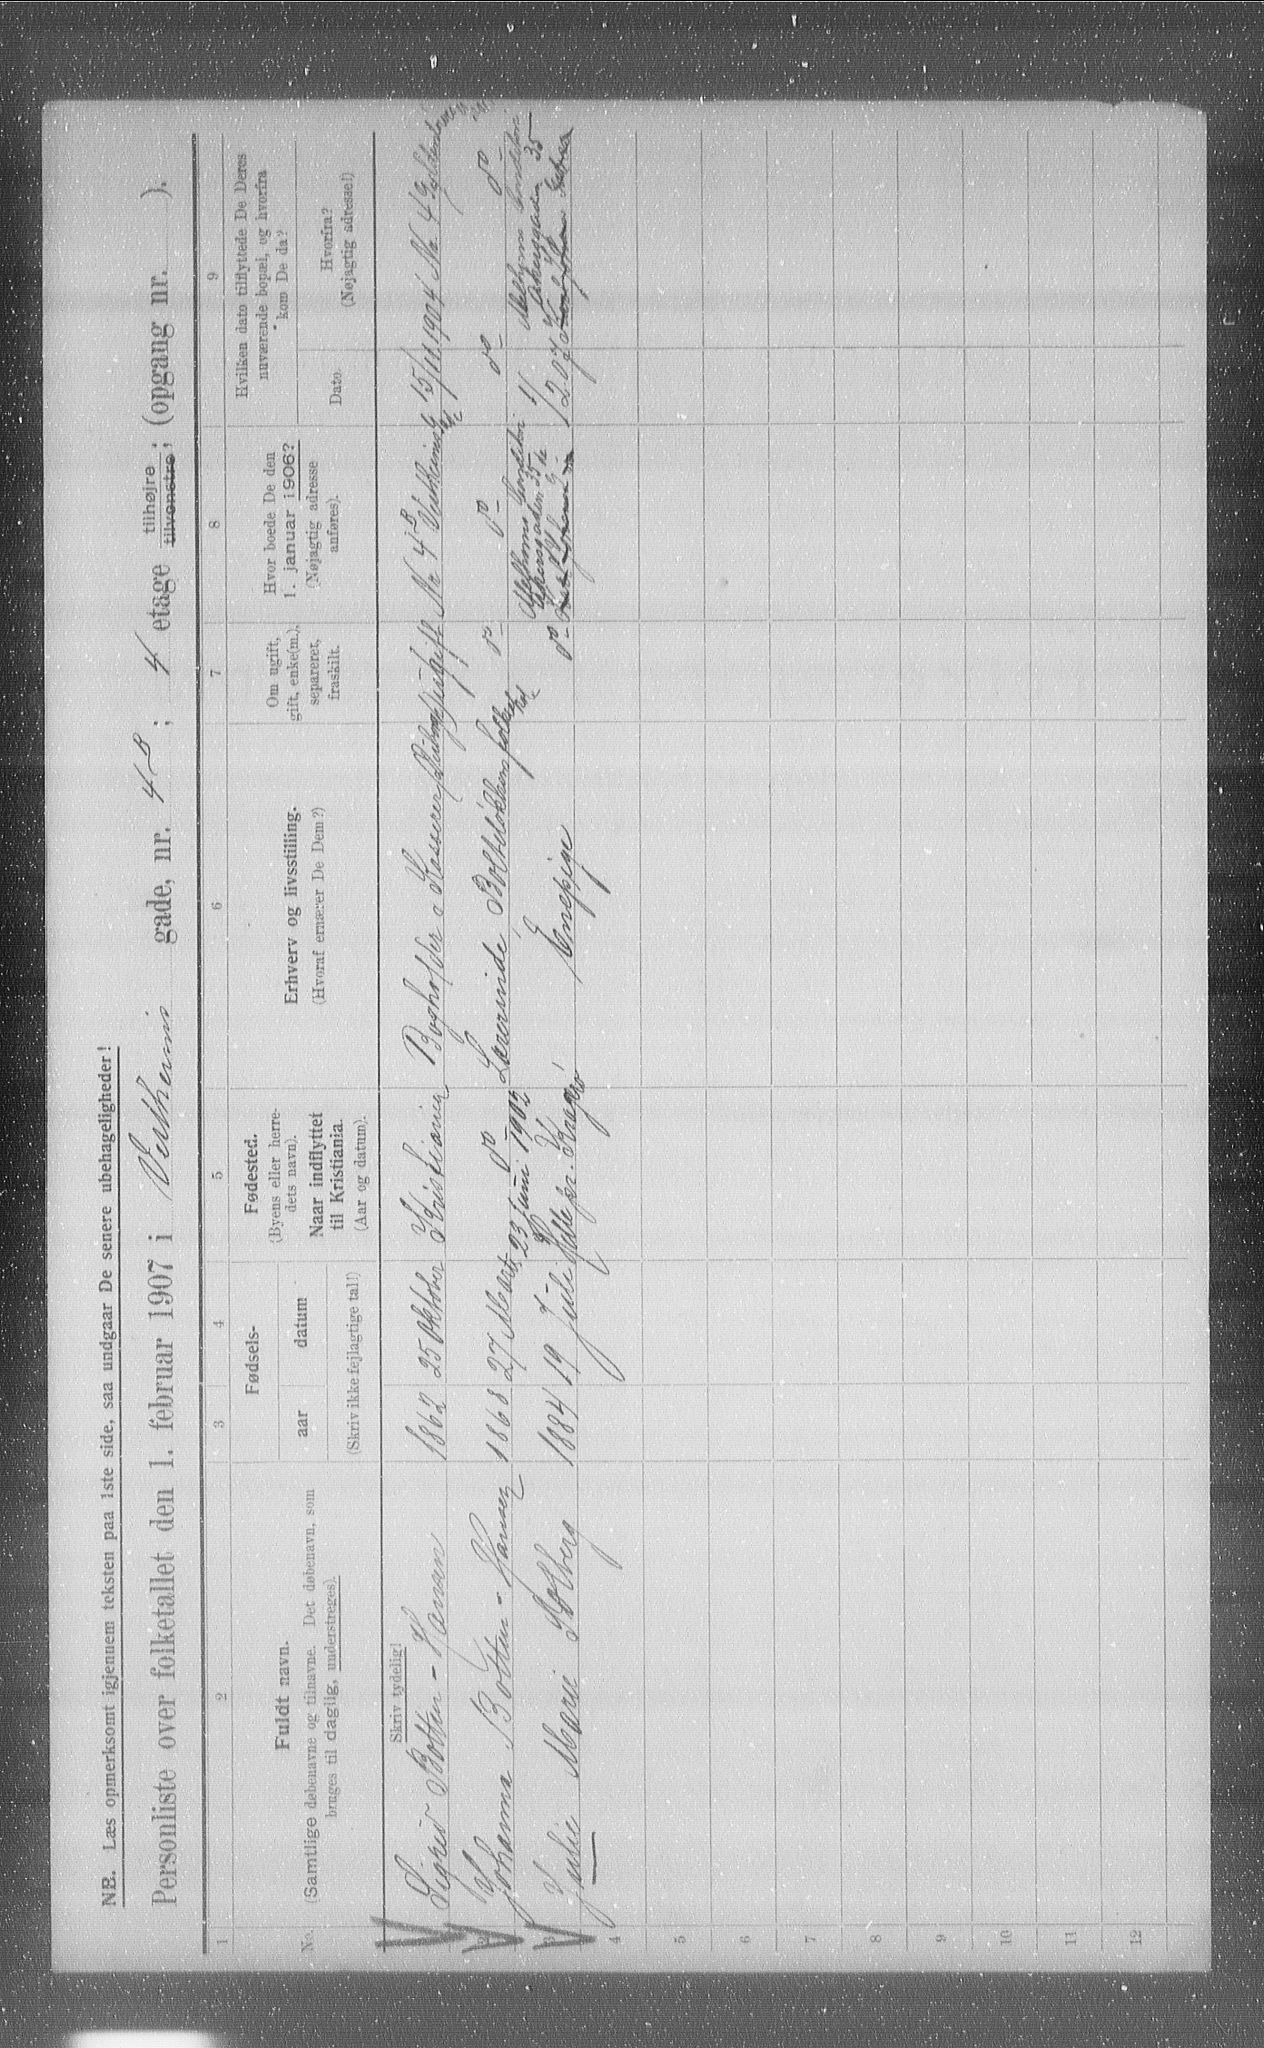 NB. Læs opmerksomt igjennem teksten paa 1ste side, saa undgaar De senere ubehageligheder!
Personliste over folketallet den 1. februar 1907 i Vidtheims gade, nr. 4 B; 4 etage tilhøjre tilvenstre; (opgang nr. ).
1 2 3 4 5 6 7 8 9
No.
Fuldt navn.
(Samtlige døbenavne og tilnavne. Det døbenavn, som
bruges til daglig, understreges).
Fødsels-
aar datum
(Skriv ikke fejlagtige tal!)
Fødested.
(Byens eller herre-
dets navn).
Naar indflyttet
til Kristiania.
(Aar og datum).
Erhverv og livsstilling.
(Hvoraf ernærer De Dem?)
Om ugift,
gift, enke(m.),
separeret,
fraskilt.
Hvor boede De den
1. januar 1906?
(Nøjagtig adresse
anføres).
Hvilken dato tilflyttede De Deres
nuværende bopæl, og hvorfra
kom De da?
Dato.
Hvorfra?
(Nøjagtig adresse!)
Skriv tydelig!
Sigrid Botten-Hansen 1862 25 Oktober Kristiania Bogholder o Kasserer ugift Nr 4 B 15/11 1904 Nr. 4
2 Johanna Botten-Hansen 1868 27 Marts do Lærerinde Bolteløkkens folkesk do do do do
3 Julie Marie Solberg 1884 19 Juli 23 Juni 1902 Helle pr. Kragerø Enepige do Akersgaden 35 1/2 07 Akersgaden 35
4
5
6
7
8
9
10
11
12